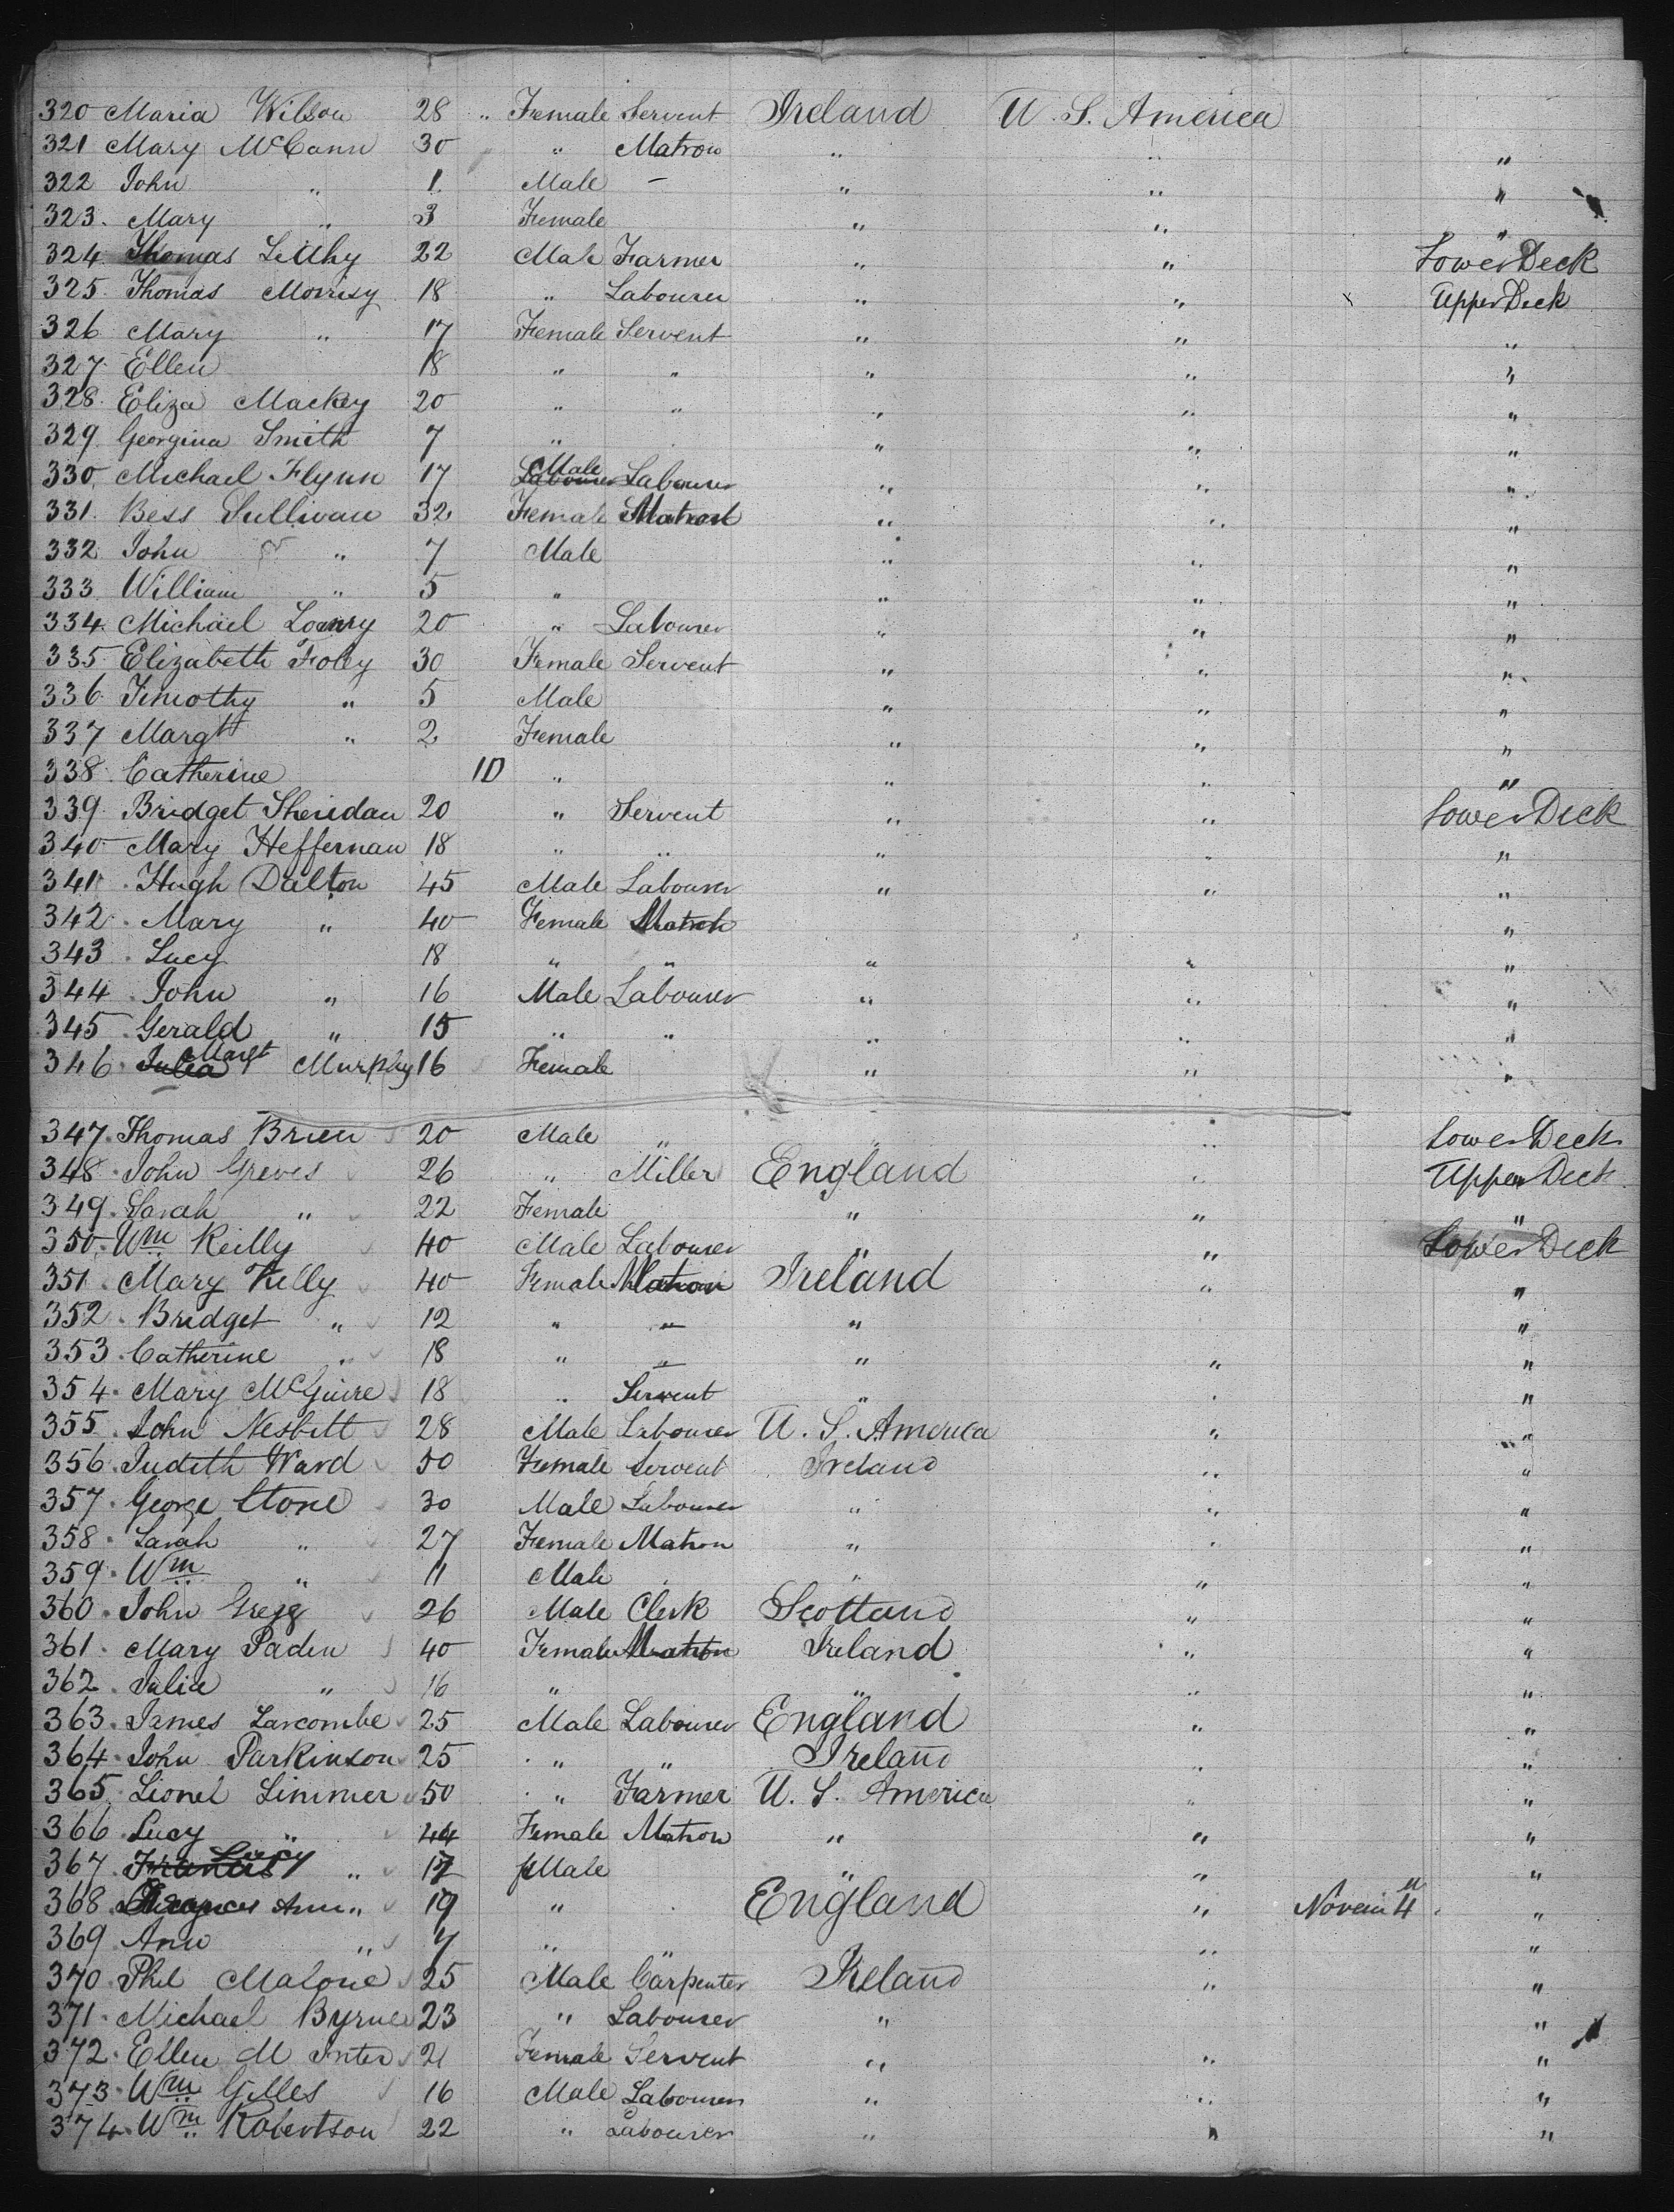 320 Maria Wilson 28 " Female Servent Ireland U. S. America
321 Mary McCann 30 " Matron " " "
322 John " 1 Male - " " "
323. Mary " 3 Female " " "
324 Thomas Leahy 22 Male Farmer " " Lower Deck
325. Thomas Morrisy 18 " Labourer " " x Upper Deck
326 Mary " 17 Female Servent " " "
327. Ellen 18 " " " " "
328. Eliza Mackey 20 " " " " "
329. Georgina Smith 7 " " " "
330. Michael Flynn 17 Labourer Male Labourer " " "
331. Bess Sullivan 32 Female Matron " " "
332 John " 7 Male " " "
333 William " 5 " " " "
334. Michael 20 " Labourer " " "
335 Elizabeth Foley 30 Female Servent " " "
336. Timothy " 5 Male " " "
337 Margtt " 2 Female " " "
338. Catherine 10 " " " "
339. Bridget Sheridan 20 " Servent " " Lower Deck
340 Mary Heffernan 18 " " " " "
341 Hugh Dalton 45 Male Labourer " " "
342. Mary " 40 Female Matron "
343. Lucy 18 " " " " "
344. John " 16 Male Labourer " " "
345. Gerald " 15 " " " " "
346. Julia Margt Murphy 16 Female " " "
347. Thomas Brien 20 Male " " " Lower Deck
348. John Greves 26 " Miller England " Upper Deck
349. Sarah " 22 Female " " "
350. Wm Reilly 40 Male Labourer " " Lower Deck
351. Mary Kelly 40 Female Matron Ireland " "
352. Bridget " 12 " " " "
353. Catherine " 18 " " " " "
354. Mary McGuire 18 " Servent " " "
355. John Nesbitt 28 Male Labourer U. S. America " "
356. Judith Ward 50 Female Servent Ireland " "
357. George Stone 30 Male Labourer " " "
358. Sarah " 27 Female Matron " " "
359. Wm " 11 Male " " "
360. John Gregg 26 Male Clerk Scotland " "
361. Mary Paden 40 Female Matron Ireland " "
362. Julia " 16 " " " "
363. James Larcombe 25 Male Labourer England " "
364. John Parkinson 25 " " Ireland " "
365. Lionel Limmer 50 " Farmer U. S. America " "
366. Lucy " 44 Female Matron " " "
367. Francis Lucy " Male " " "
368 Ann " 19 " England " Novem 4 "
369. Ann " 7 " " " "
370. Phil Malone 25 Male Carpenter Ireland " "
371. Michael Byrnes 23 " Labourer " " "
372. Ellen M Inter 21 Female Servent " " "
373. Wm Gilles 16 Male Labourer " " "
374. Wm Robertson 22 " Labourer " " "